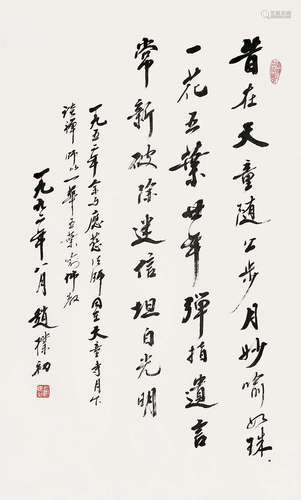 昔在天童随公步月妙喻如珠
一花五葉廿年彈指遺言
常新破除迷信坦白光明
一九五二年余与應慈法師同在天童寺月下
談禅師以一華五葉喻佛教
一九九二年八月趙樸初